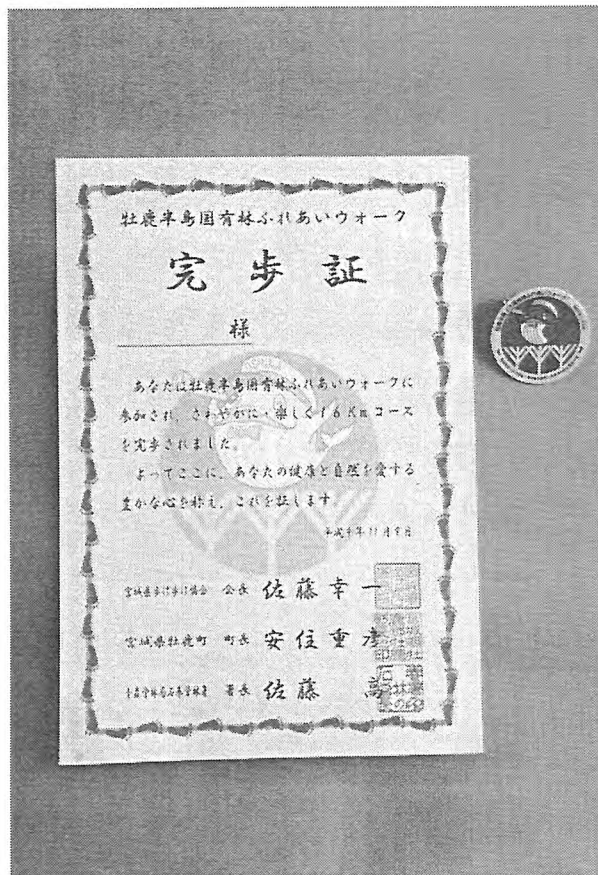 牡鹿半島国有林ふれあいウォーク
完歩証
様
あなたは牡鹿半島国有林ふれあいウォークに
参加され、さわやかに・楽しく16Kmコース
を完歩されました。
よってここに、あなたの健康と自然を愛する
豊かな心を称え、これを証します。
平成9年11月9日
宮城県歩け歩け協会 会長 佐藤幸一
宮城県牡鹿町 町長 安住重彦
青森営林局石巻営林署 署長 佐藤 萬